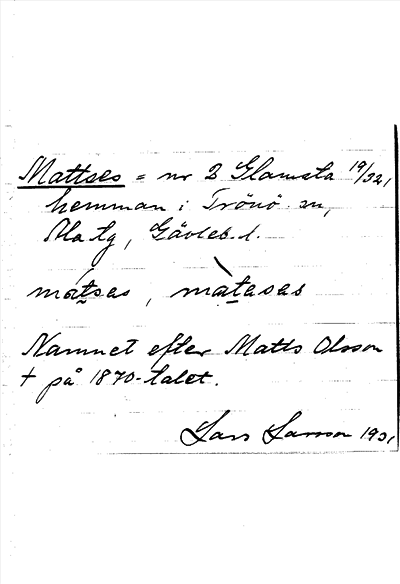 Mattses = nr 2 Glamsta 19/32,
hemman i Trönö sn,
Ala tg, Gävleb. l.
mátsas, màtasas
Namnet efter Matts Olsson
† på 1870-talet.
Lars Larsson 1931